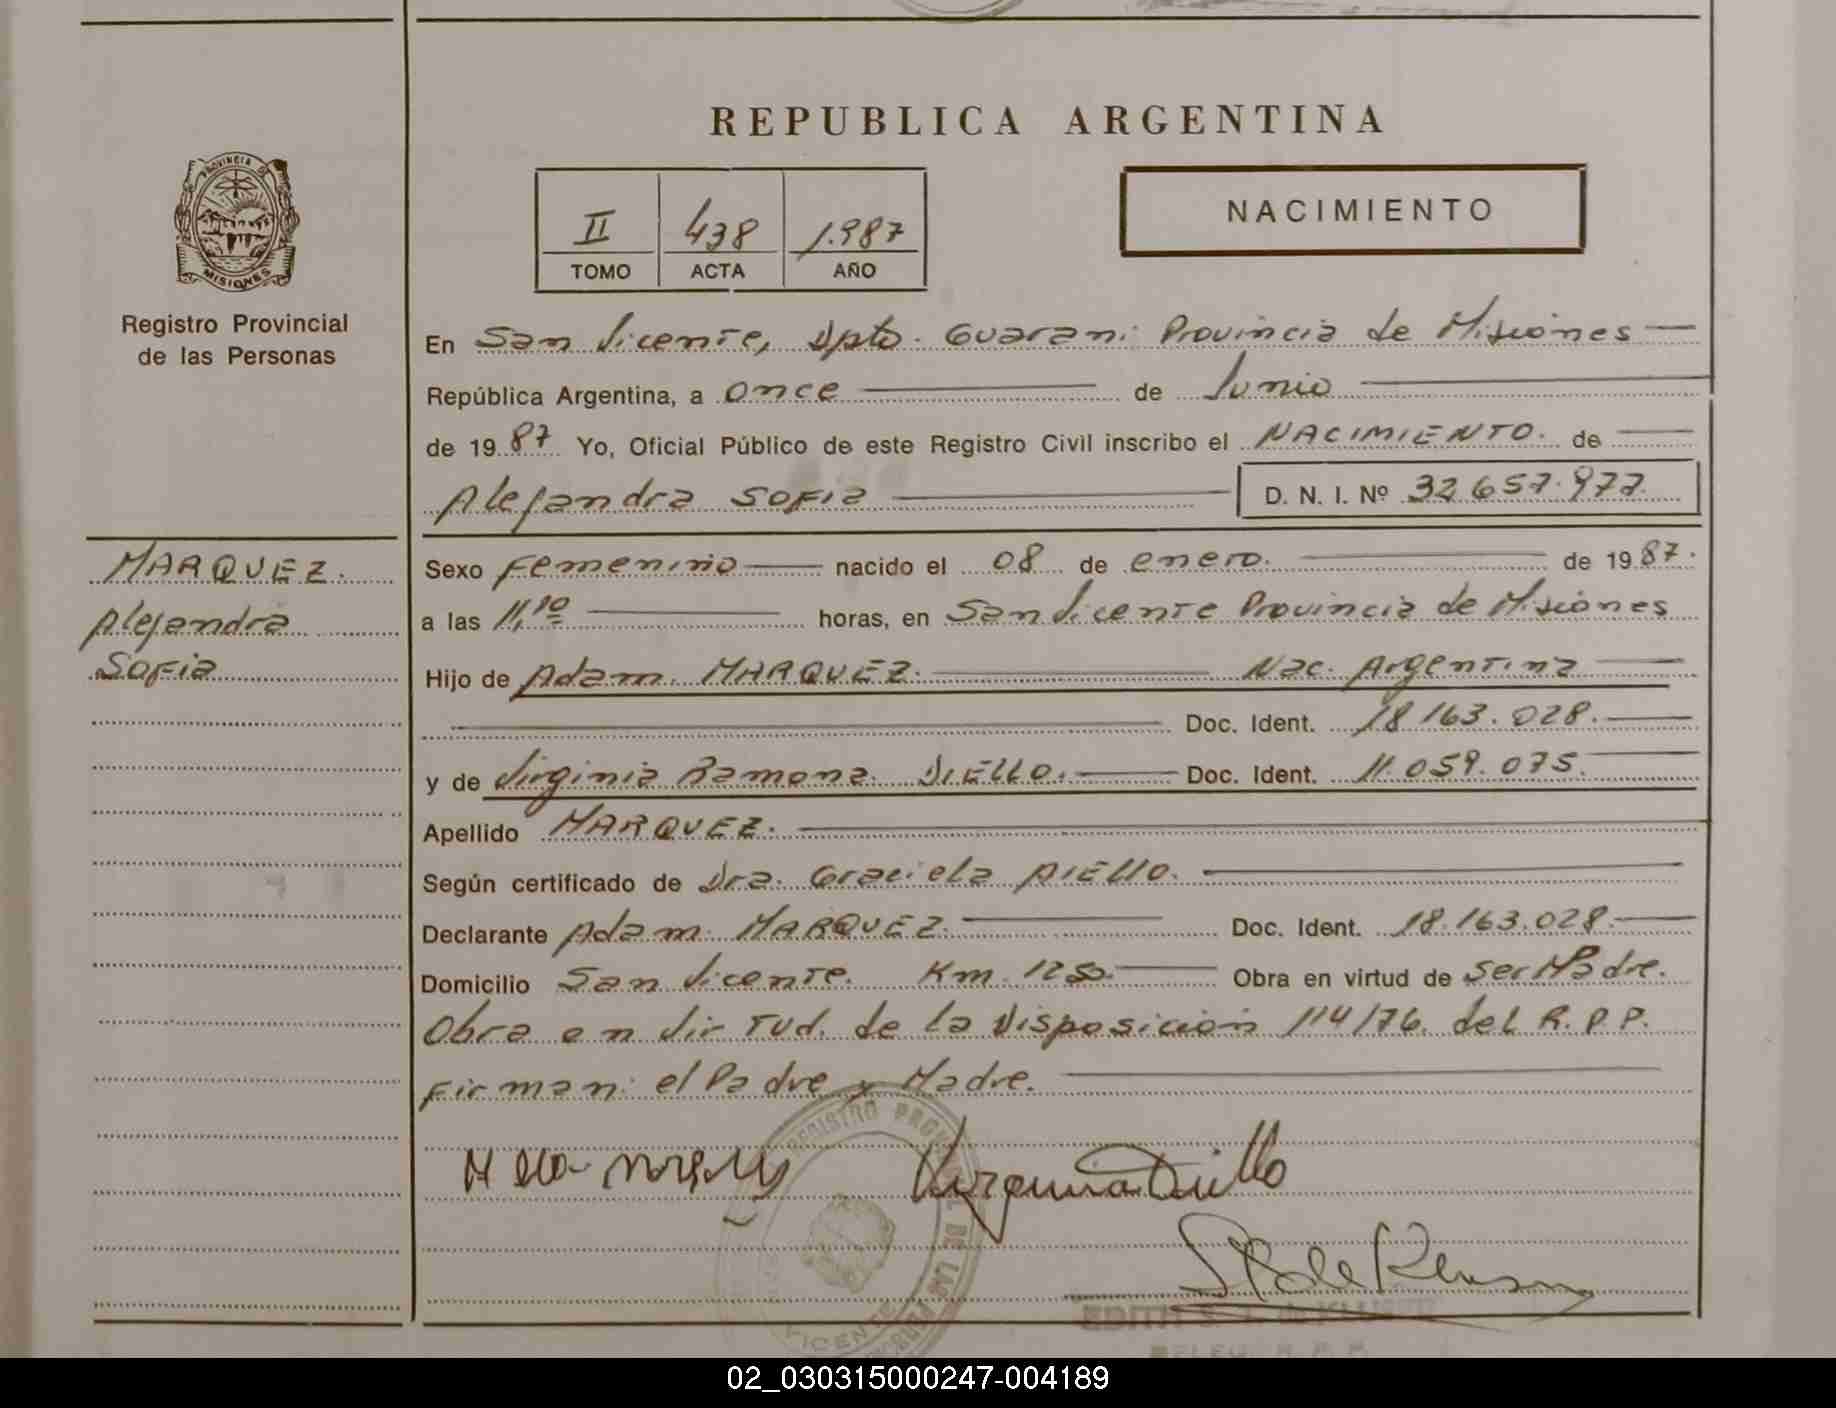 REPUBLICA ARGENTINA
PROVINCIA DE
MISIONES
Registro Provincial
de las Personas
II 438 1.987
TOMO ACTA AÑO
NACIMIENTO
En San Vicente, Dpto. Guarani Provincia de Misiones
República Argentina, a once de Junio
de 1987 Yo, Oficial Público de este Registro Civil inscribo el NACIMIENTO. de
Alejandra Sofia D. N. I. Nº 32.657.977
MARQUEZ.
Alejandra
Sofia
Sexo Femenino nacido el 08 de enero. de 1987.
a las 11,10 horas, en San Vicente Provincia de Misiones
Hijo de Adam. MARQUEZ. Nac. Argentina
Doc. Ident. 18.163.028.
y de Virginia Ramona. DIELLO. Doc. Ident. 11.059.075.
Apellido MARQUEZ.
Según certificado de Dra. Graciela AIELLO.
Declarante Adam. MARQUEZ. Doc. Ident. 18.163.028.
Domicilio San Vicente. Km. 1250. Obra en virtud de ser Padre.
Obra en virtud. de la Disposicion 114/76. del R.P.P.
Firman: el Padre y Madre.
REGISTRO PROVINCIAL DE LAS PERSONAS
VICENTE
02_030315000247-004189